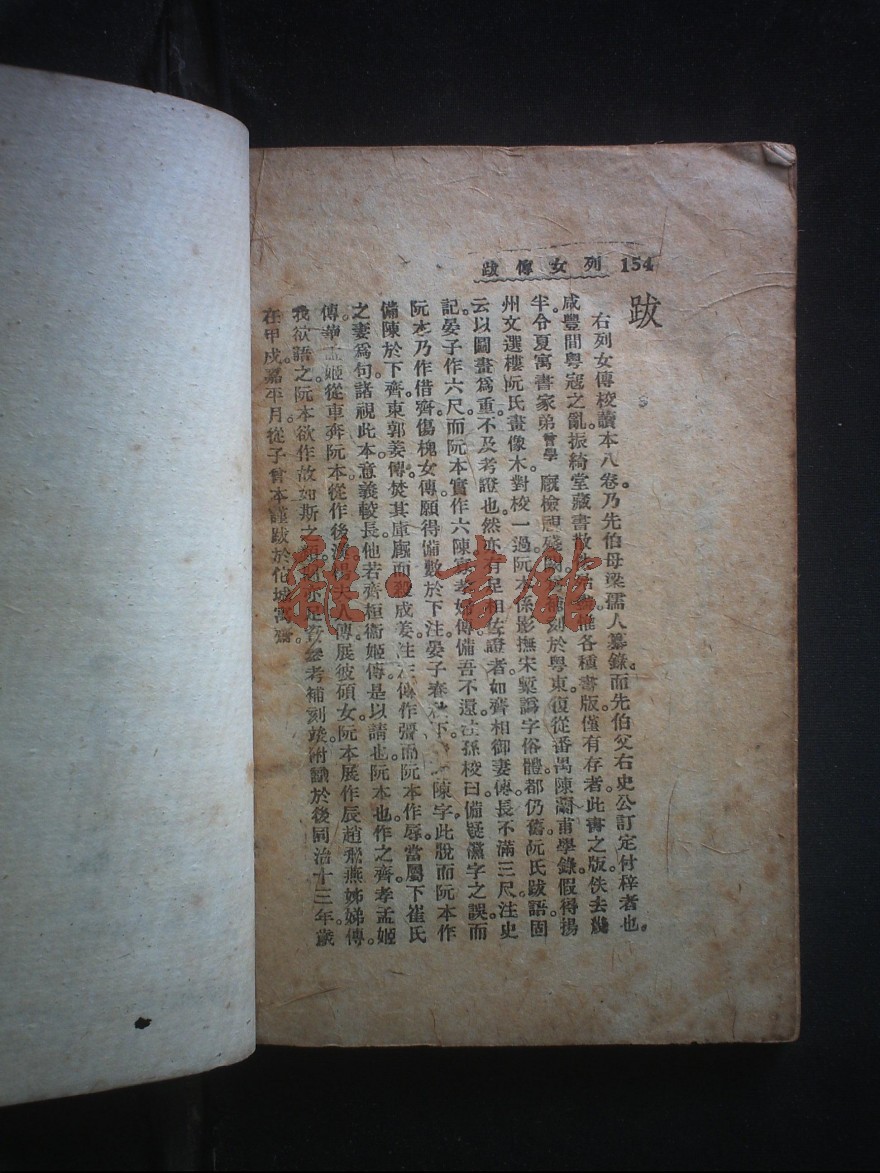 154 列女傳跋
跋
右列女傳校讀本八卷。乃先伯母梁孺人纂錄。而先伯父右史公訂定付梓者也。
咸豐間粵寇之亂。振綺堂藏書散 各種書版僅有存者。此書之版。佚去幾
半。今夏寓書家弟曾學 殘 補刻於粵東。復從番禺陳灁甫學錄。假得揚
州文選樓阮氏畫像本對校一過。阮本係影撫宋槧。譌字俗體。都仍舊。阮氏跋語。固
云以圖畫爲重。不及考證也。然亦有足 證者。如齊相御妻傳。長不滿三尺。注史
記晏子作六尺。而阮本實作六。陳寡孝婦傳。備吾不還。注孫校曰。備疑黨字之誤。而
阮本乃作借。齊傷槐女傳。願得備數於下。注晏子春秋下 陳字。此脫。而阮本作
備陳於下。齊東郭姜傳。焚其庫廄而殺成姜。注左傳作彊。而阮本作辱。當屬下崔氏
之妻爲句。諸視此本意義較長。他若齊桓衞姬傳。是以請也。阮本也作之。齊孝孟姬
傳。華孟姬從車奔。阮本從作後。 夫人傳。展彼碩女。阮本展作辰。趙飛燕姊娣傳。
我欲語之。阮本欲作故。如斯之 參考。補刻竣。附識於後。同治十三年歲
在甲戌嘉平月。從子曾本謹跋於佗城寓齋。
雜·書館